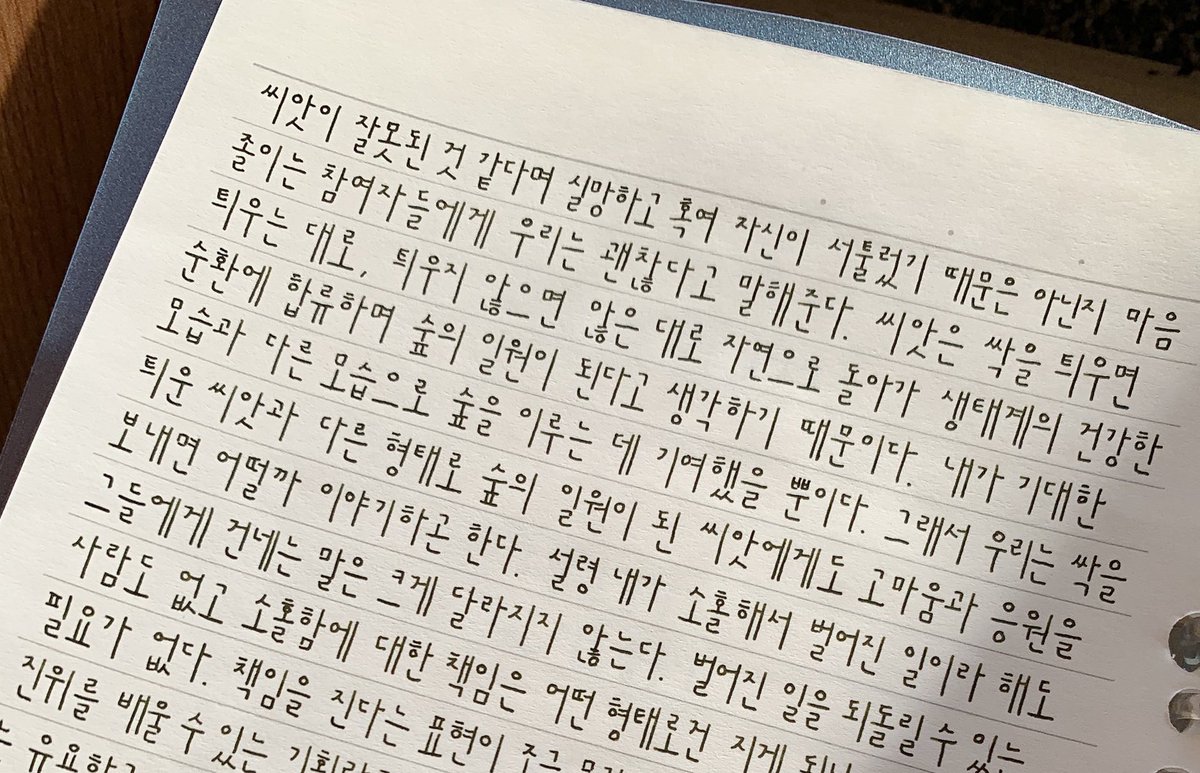 씨앗이 잘못된 것 같다며 실망하고 혹여 자신이 서툴렀기 때문은 아닌지 마음
졸이는 참여자들에게 우리는 괜찮다고 말해준다. 씨앗은 싹을 틔우면
틔우는 대로, 틔우지 않으면 않은 대로 자연으로 돌아가 생태계의 건강한
순환에 합류하며 숲의 일원이 된다고 생각하기 때문이다. 내가 기대한
모습과 다른 모습으로 숲을 이루는 데 기여했을 뿐이다. 그래서 우리는 싹을
틔운 씨앗과 다른 형태로 숲의 일원이 된 씨앗에게도 고마움과 응원을
보내면 어떨까 이야기하곤 한다. 설령 내가 소홀해서 벌어진 일이라 해도
그들에게 건네는 말은 크게 달라지지 않는다. 벌어진 일을 되돌릴 수 있는
사람도 없고 소홀함에 대한 책임은 어떤 형태로건 지게 되
필요가 없다. 책임을 진다는 표현이 주
진위를 배울 수 있는
유효하